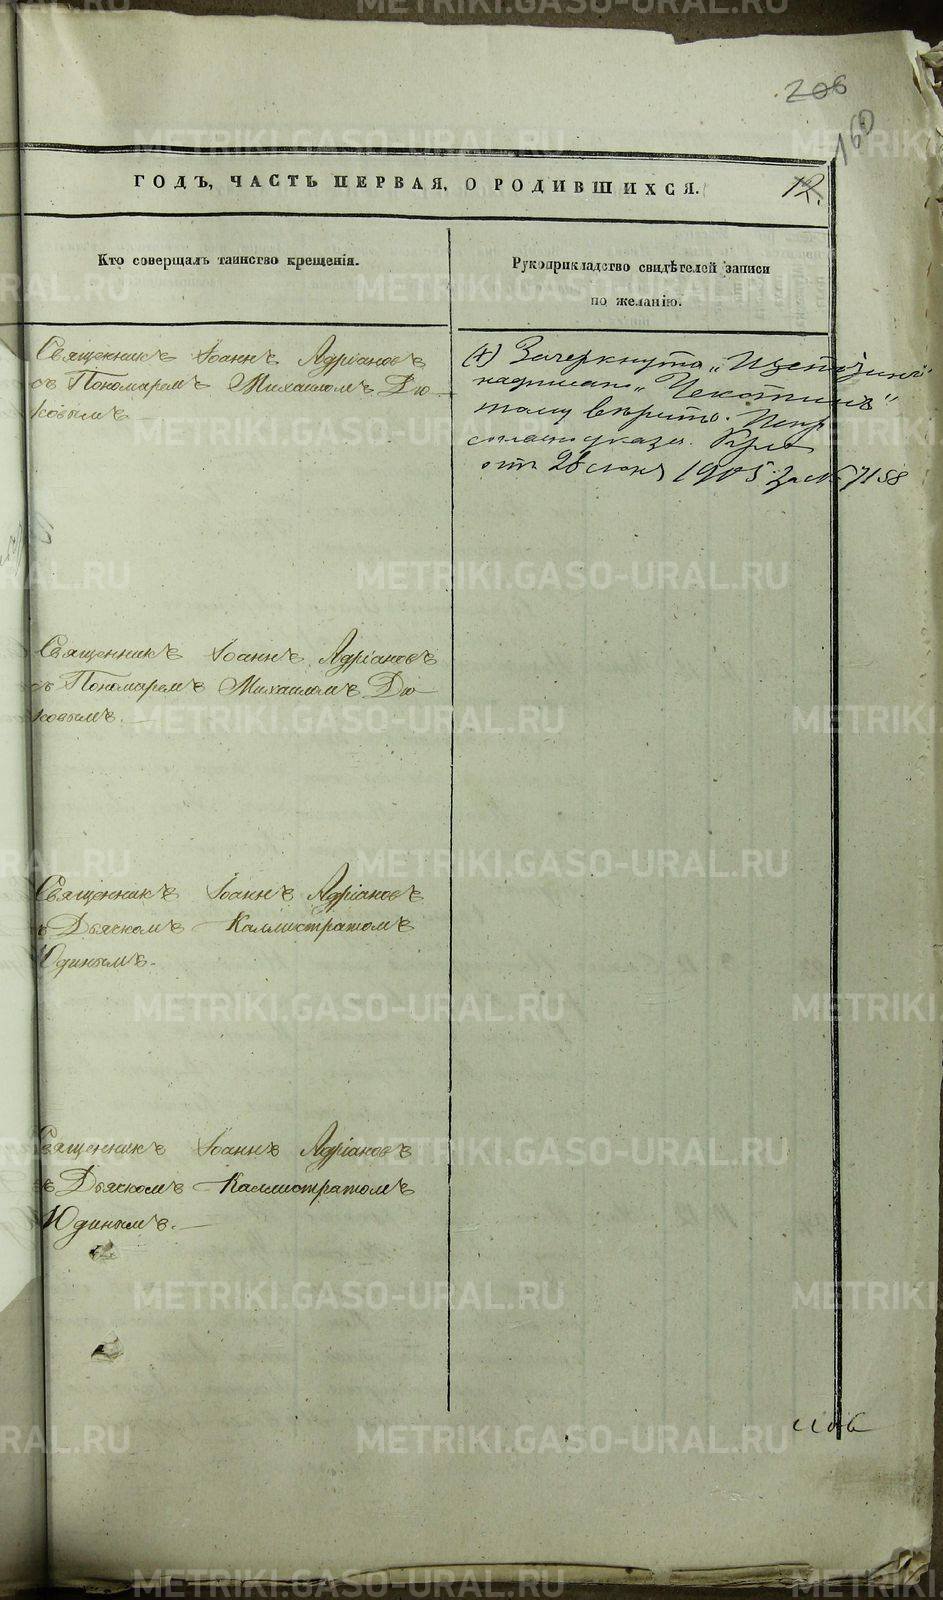 206
160
ГОДЪ, ЧАСТЬ ПЕРВАЯ, О РОДИВШИХСЯ.
12.
Кто совершалъ таинство крещенія.
Рукоприкладство свидѣтелей записи
по желанію.
Священникъ Іоаннъ Адріановъ
съ Пономаремъ Михаиломъ Дю-
ковымъ
Зачеркнуто
надписано „Чекотинъ"
тому вѣрить.
согласно указа
отъ 28 1905 за № 7158
Священникъ Іоаннъ Адріановъ
съ Пономаремъ Михаиломъ Дю
ковымъ.
Священникъ Іоаннъ Адріановъ
съ Дьячкомъ Каллистратомъ
Юдинымъ.
Священникъ Іоаннъ Адріановъ
съ Дьячкомъ Каллистратомъ
Юдинымъ.
METRIKI.GASO-URAL.RU